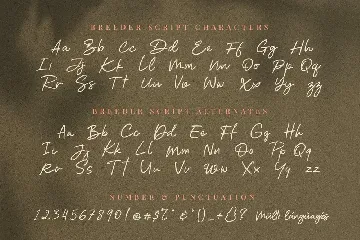 BREEDER SCRIPT CHARACTERS
Aa Bb Cc Dd Ee Ff Gg Hh
Ii Jj Kk Ll Mm Nn Oo Pp Qq
Rr Ss Tt Uu Vv Ww Xx Yy Zz
BREEDER SCRIPT ALTERNATES
Aa Bb Cc Dd Ee Ff Gg Hh
Ii Jj Kk Ll Mm Nn Oo Pp Qq
Rr Ss Tt Uu Vv Ww Xx Yy Zz
NUMBER & PUNCTUATION
1234567890!@#$%^&*()_+{}? Multi Languages